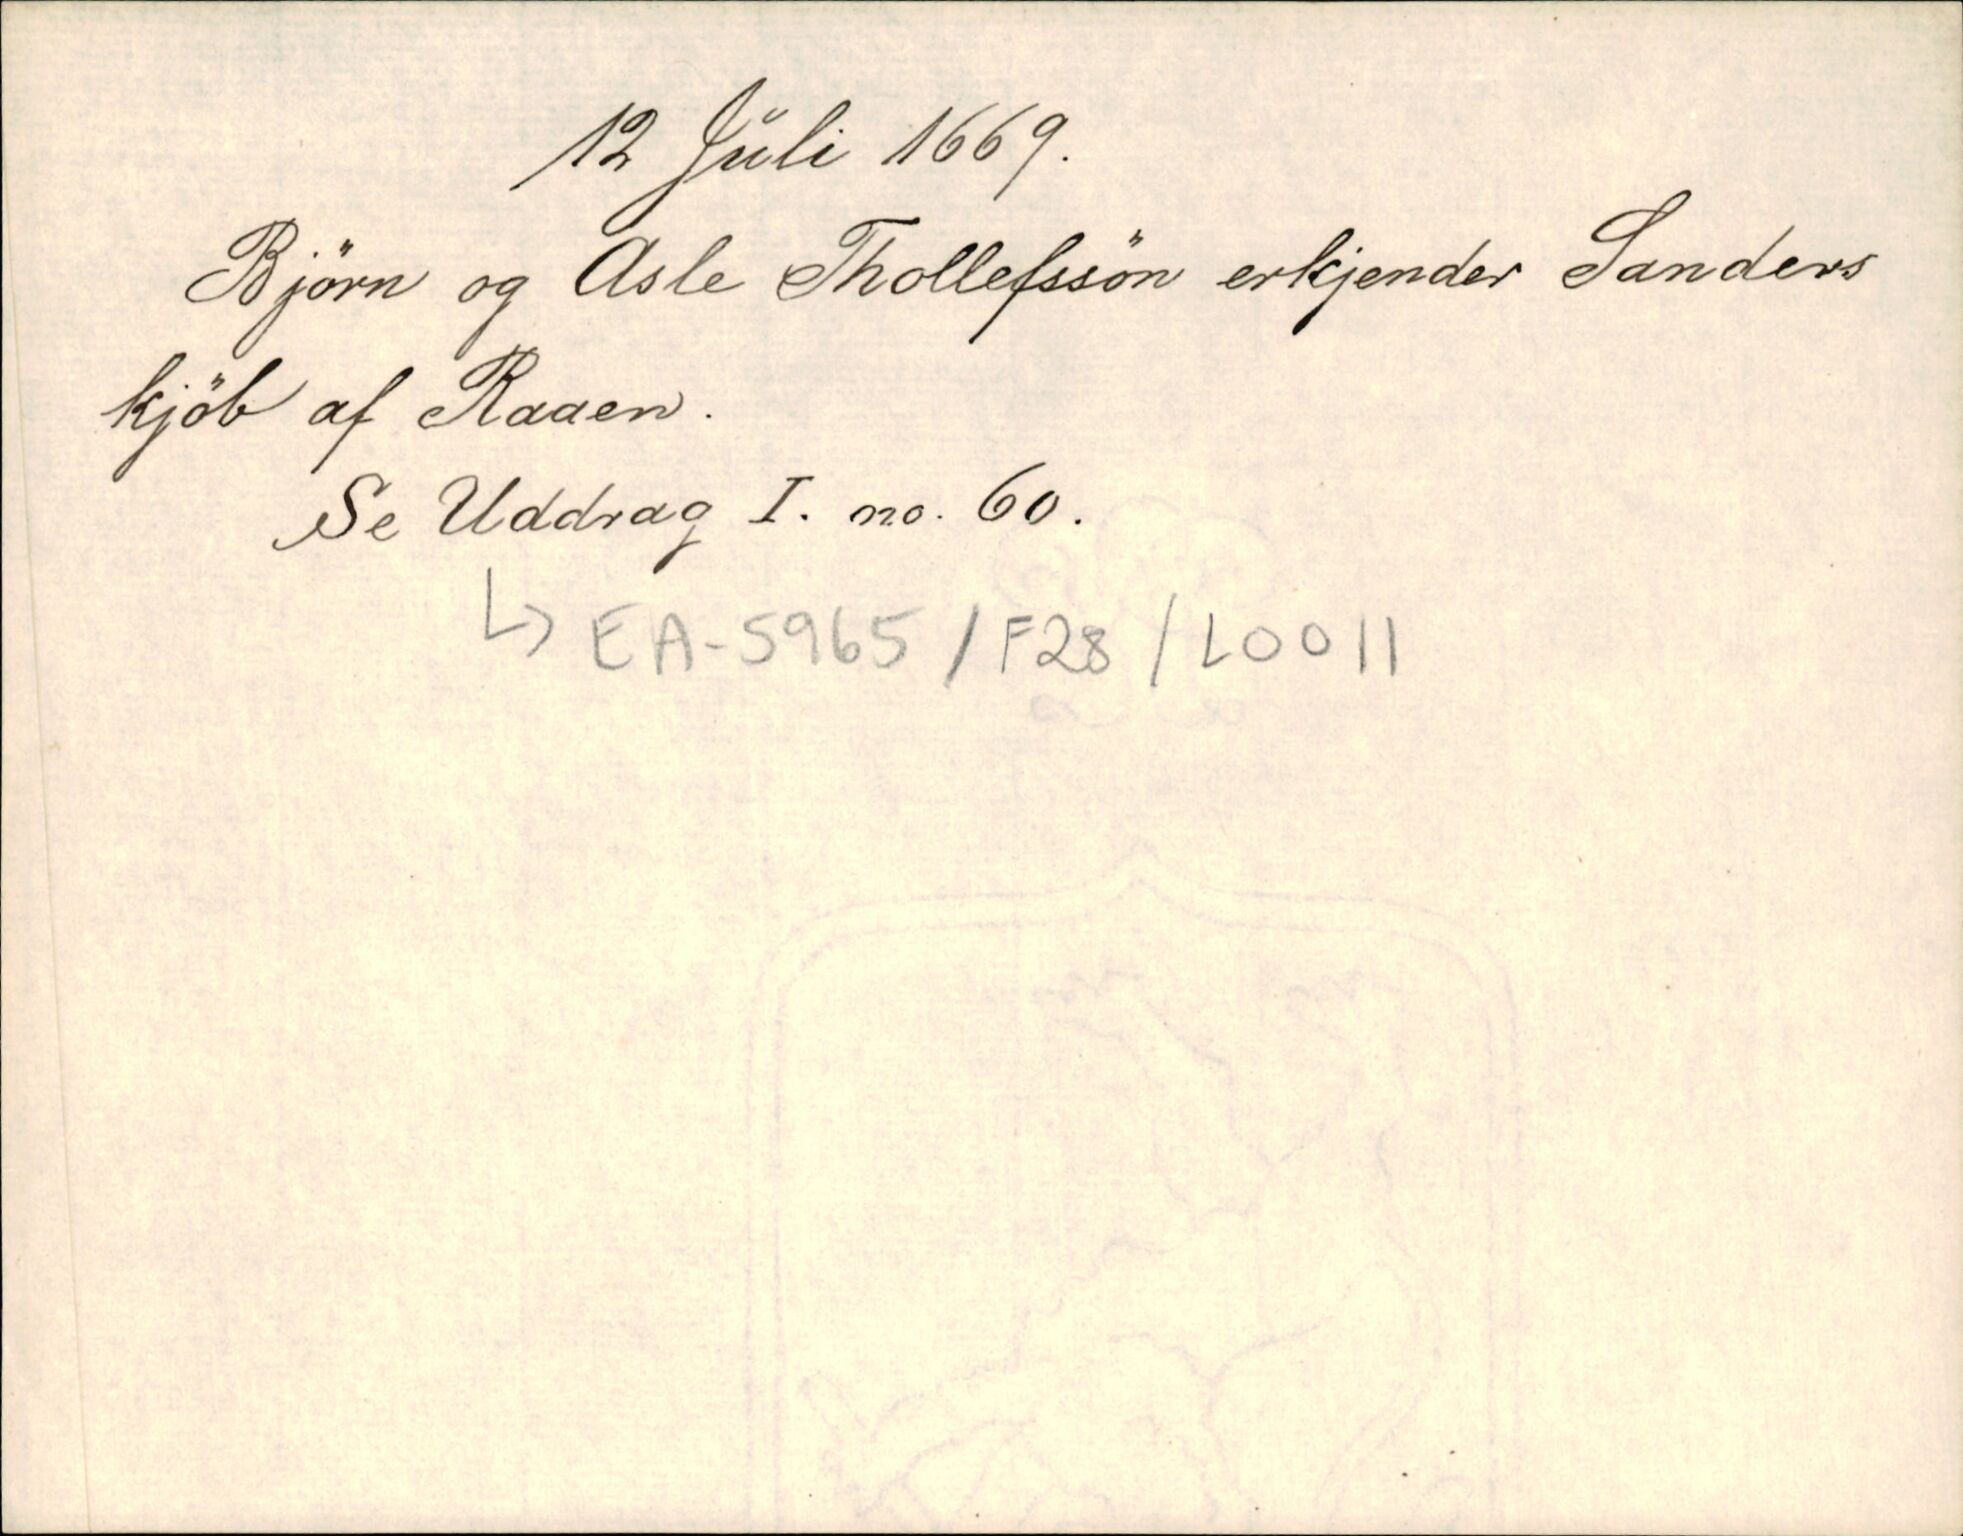 12 Juli 1669.
Björn og Asle Thollefssön erkjender Sanders
kjöb af Raaen.
Se Uddrag I. no. 60.
↳ EA-5965 / F28 / L0011